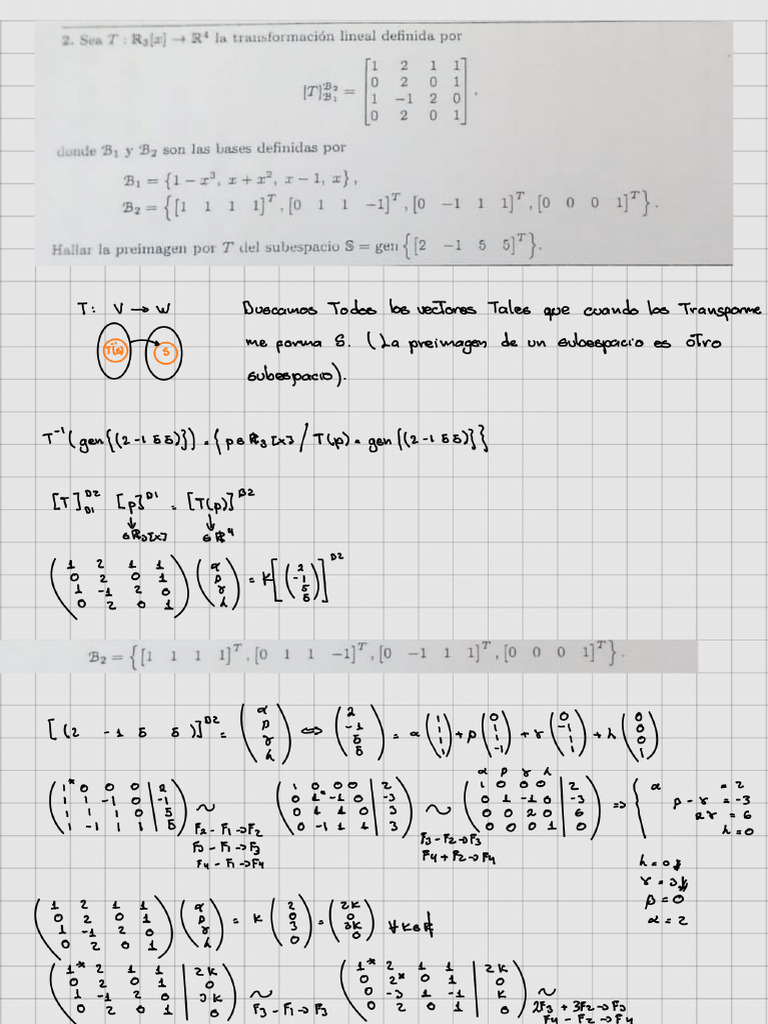 2. Sea T : R₃[x] → R⁴ la transformación lineal definida por
[T]^{B₂}_{B₁} = [1 2 1 1
0 2 0 1
1 −1 2 0
0 2 0 1],
donde B₁ y B₂ son las bases definidas por
B₁ = {1 − x³, x + x², x − 1, x},
B₂ = {[1 1 1 1]ᵀ, [0 1 1 −1]ᵀ, [0 −1 1 1]ᵀ, [0 0 0 1]ᵀ}.
Hallar la preimagen por T del subespacio S = gen {[2 −1 5 5]ᵀ}.
T: V → W Buscamos Todos los vectores Tales que cuando los Transforme
me forma S. (La preimagen de un subespacio es otro
subespacio).
S
T⁻¹(gen{(2 -1 5 5)}) = {p ∈ R₃[x] / T(p) = gen{(2 -1 5 5)}}
[T]^{B2}_{B1} [p]^{B1} = [T(p)]^{B2}
∈ R₃[x] ∈ R⁴
(1 2 1 1
0 2 0 1
1 -1 2 0
0 2 0 1) (α
β
γ
h) = K [(2
-1
5
5)]^{B2}
B₂ = {[1 1 1 1]ᵀ, [0 1 1 −1]ᵀ, [0 −1 1 1]ᵀ, [0 0 0 1]ᵀ}.
[(2 -1 5 5)]^{B2} = (α β γ h) ⇔ (2 -1 5 5) = α(1 1 1 1) + β(0 1 1 -1) + γ(0 -1 1 1) + h(0 0 0 1)
(1* 0 0 0 | 2
1 1 -1 0 | -1
1 1 1 0 | 5
1 -1 1 1 | 5) ~
F2 - F1 → F2
F3 - F1 → F3
F4 - F1 → F4
(1 0 0 0 | 2
0 1* -1 0 | -3
0 1 1 0 | 3
0 -1 1 1 | 3) ~
F3 - F2 → F3
F4 + F2 → F4
α β γ h
(1 0 0 0 | 2
0 1 -1 0 | -3
0 0 2 0 | 6
0 0 0 1 | 0) ⇒ { α = 2
β - γ = -3
2γ = 6
h = 0
h = 0
γ = 3
β = 0
α = 2
(1 2 1 1
0 2 0 1
1 -1 2 0
0 2 0 1) (α
β
γ
h) = K (2
0
3
0) = (2K
0
3K
0) ∀K∈R
(1* 2 1 1 | 2K
0 2 0 1 | 0
1 -1 2 0 | 3K
0 2 0 1 | 0) ~
F3 - F1 → F3
(1* 2 1 1 | 2K
0 2* 0 1 | 0
0 -3 1 -1 | K
0 2 0 1 | 0) ~
2F3 + 3F2 → F3
F4 - F2 → F4